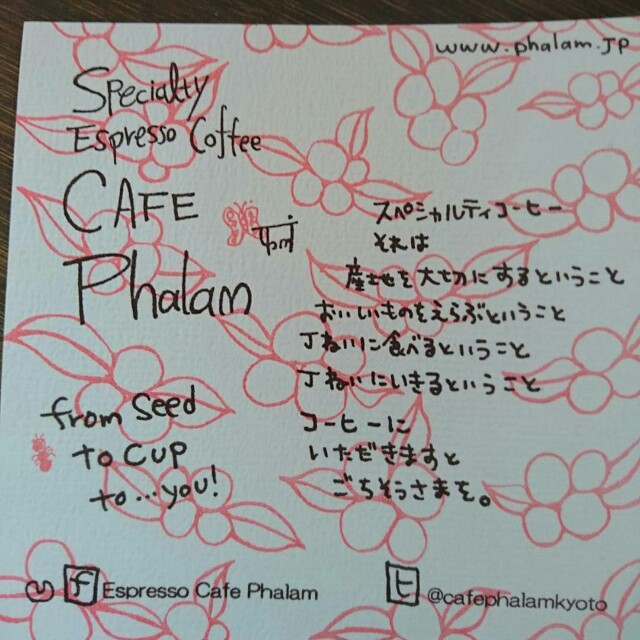 www.phalam.jp
Specialty
Espresso Coffee
CAFE
फलं
Phalam
スペシャルティコーヒー
それは
産地を大切にするということ
おいしいものをえらぶということ
丁ねいに食べるということ
丁ねいにいきるということ
コーヒーに
いただきますと
ごちそうさまを。
from seed
to cup
to...you!
f Espresso Cafe Phalam
t @cafephalamkyoto